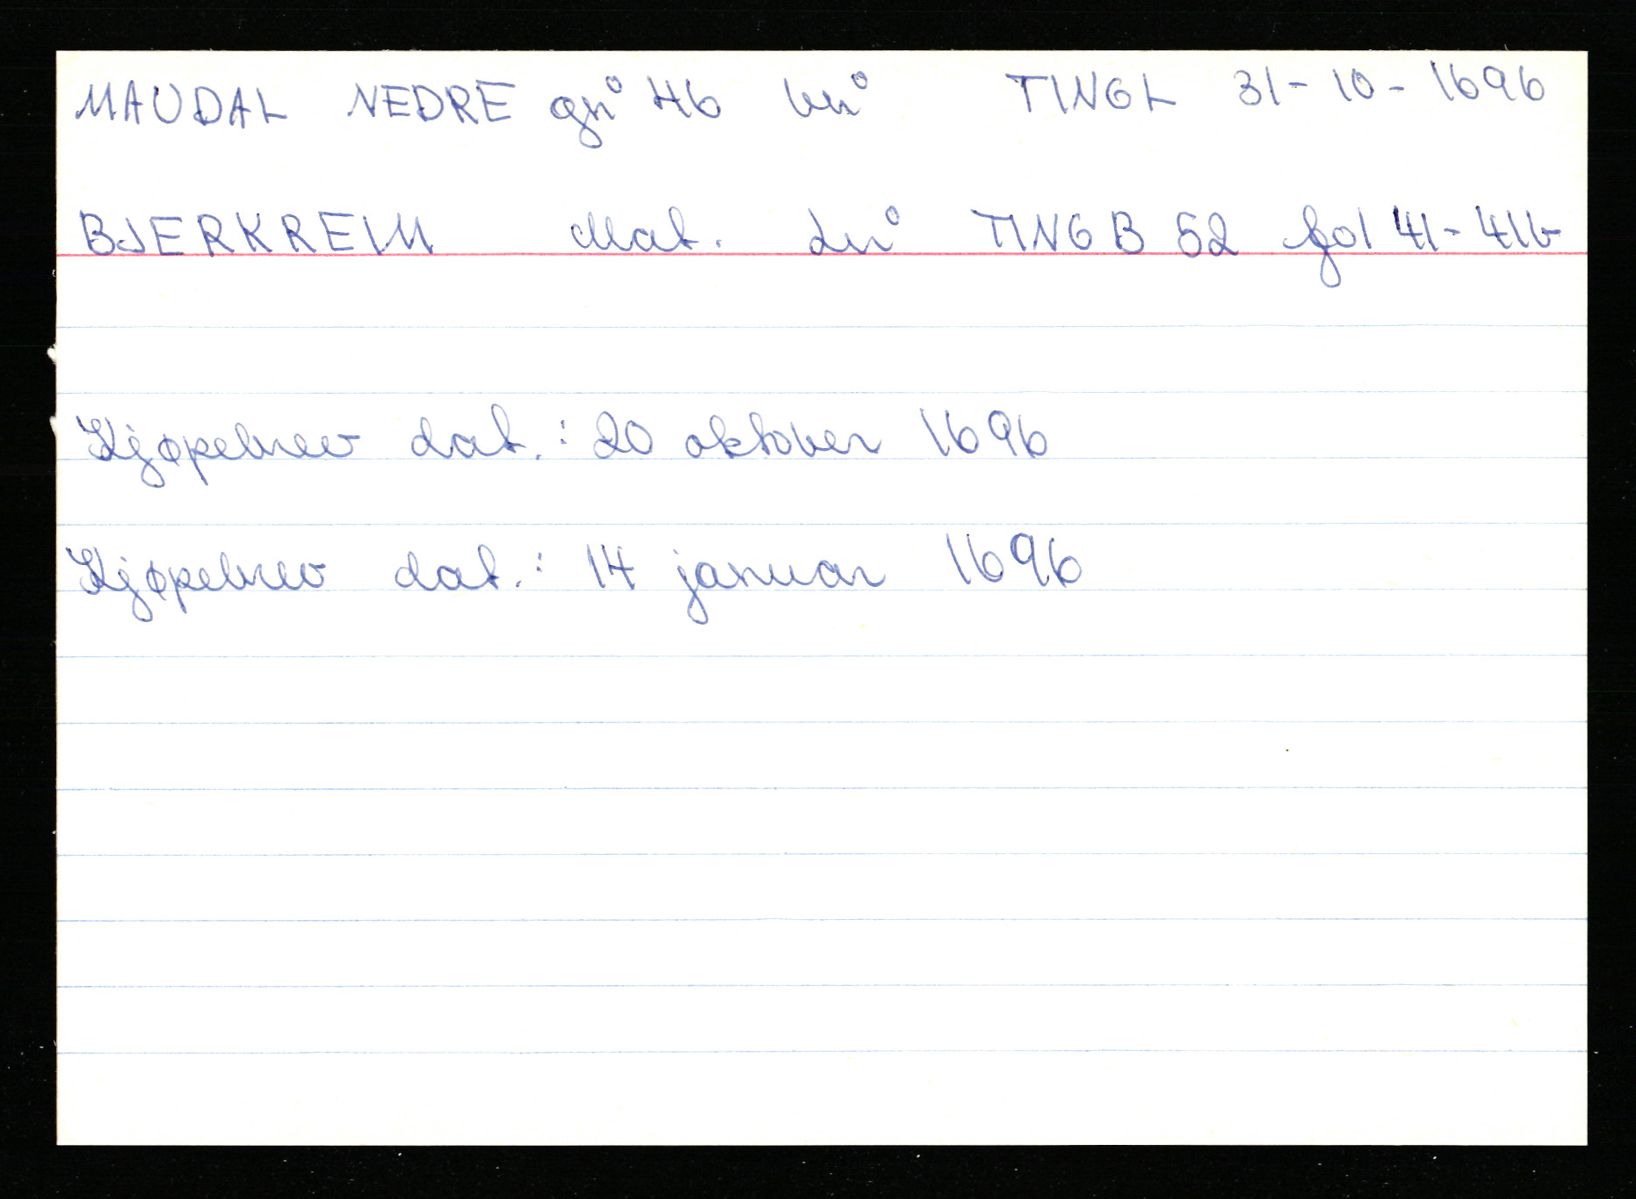 MAUDAL NEDRE gn° 46 bn° TINGL 31-10-1696
BJERKREIM Mat. Ln° TINGB 52 fol 41-41b
Kjøpebrev dat.: 20 oktober 1696
Kjøpebrev dat.: 14 januar 1696